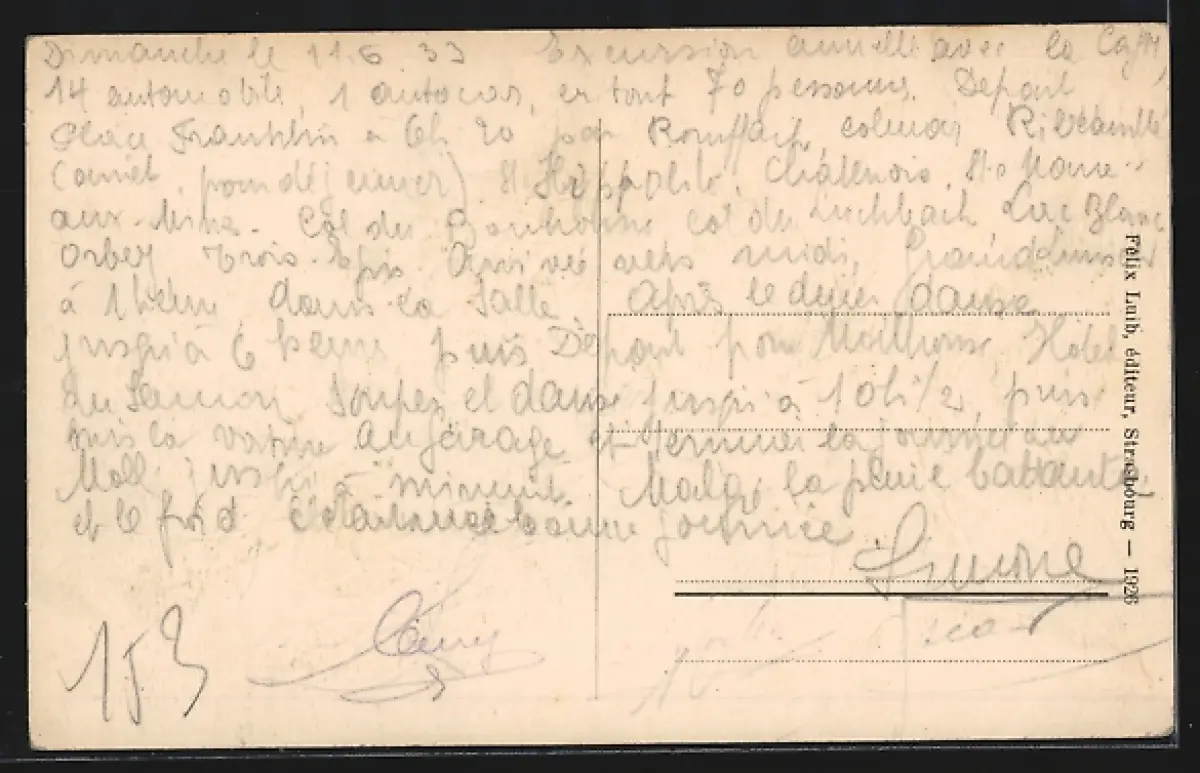 Dimanche le 11.6 33 Excursion annuelle avec la
14 automobile, 1 autocar, en tout 70 personnes. Depart
Place Franklin a 6h 20 par Rouffach, colmar, Ribeauvillé
(arrêt, pour déjeuner) St. Hippolite, Châtenois, Ste Marie-
aux-Mine. Col du Bonhomme col du Luchbach, Lac Blanc
Orbey Trois-Epis Arrivée vers midi. Grand
à 1 heure dans la Salle. Après le diner danse
jusqu'à 6 heure puis Départ pour Mulhouse, Hôtel
du Saumon Souper et danse jusqu'à 10h 1/2, puis
mis la voiture au garage et terminer la journée au
Moll jusqu'à minuit. Malgré la pluie battante
et le froid bonne journée.
Simone
153
Félix Luib, éditeur, Strasbourg — 1926